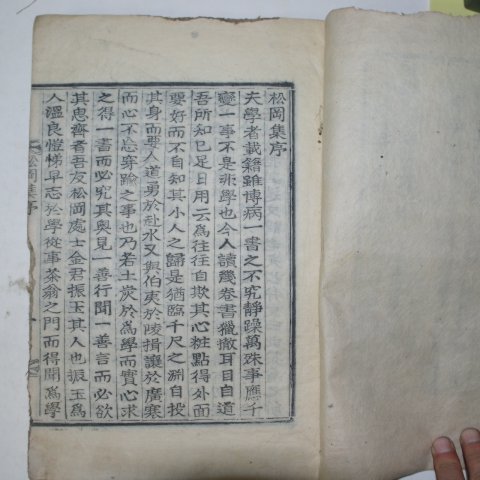 松岡集序
夫學者載籍雖博病一書之不究靜躁萬殊事應千
變一事不是非學也今人讀幾卷書獵撤耳目自道
吾所知已足日用云爲往往自欺其心粧點得外面
要好而不自知其小人之歸是猶臨千尺之淵自投
其身而要人道勇於赴水又與伯夷於陵揖讓於廣寒
而心不忘穿踰之事也乃若土炭於爲學而實心求
之得一書而必究其奧見一善行聞一善言而必欲
其思齊者吾友松岡處士金君振玉其人也振玉爲
人溫良愷悌早志於學從事茶翁之門而得聞爲學
松岡集序